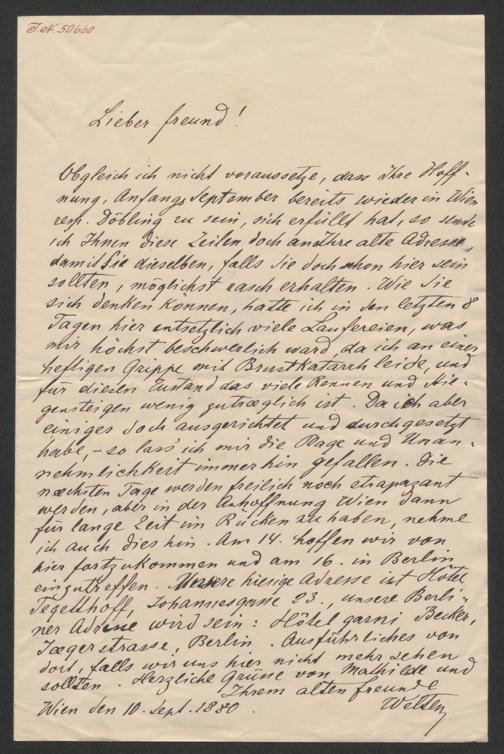 I.N. 50660
Lieber Freund!
Obgleich ich nicht voraussetze, dass Ihre Hoff-
nung, Anfangs September bereits wieder in Wien
resp. Döbling zu sein, sich erfüllt hat, so sende
ich Ihnen diese Zeilen doch an Ihre alte Adresse,
damit Sie dieselben, falls Sie doch schon hier sein
sollten, möglichst rasch erhalten. Wie Sie
sich denken können, hatte ich in den letzten 8
Tagen hier entsetzlich viele Laufereien, was
mir höchst beschwerlich ward, da ich an einer
heftigen Grippe mit Brustkatarrh leide, und
für diesen Zustand das viele Rennen und Stie-
gensteigen wenig zuträglich ist. Da ich aber
einiges doch ausgerichtet und durchgesetzt
habe, – so lass' ich mir die Plage und Unan-
nehmlichkeit immerhin gefallen. Die
næchsten Tage werden freilich noch strapazant
werden, aber in der Anhoffnung Wien dann
für lange Zeit im Rücken zu haben, nehme
ich auch dies hin. Am 14. hoffen wir von
hier fortzukommen und am 16. in Berlin
einzutreffen. Unsere hiesige Adresse ist Hôtel
Tegetthoff, Johannesgasse 23., unsere Berli-
ner Adresse wird sein: Hôtel garni Becker,
Jægerstrasse, Berlin. Ausführliches von
dort, falls wir uns hier nicht mehr sehen
sollten. Herzliche Grüsse von Mathilde und
Ihrem alten Freunde
Wien den 10. Sept. 1880.